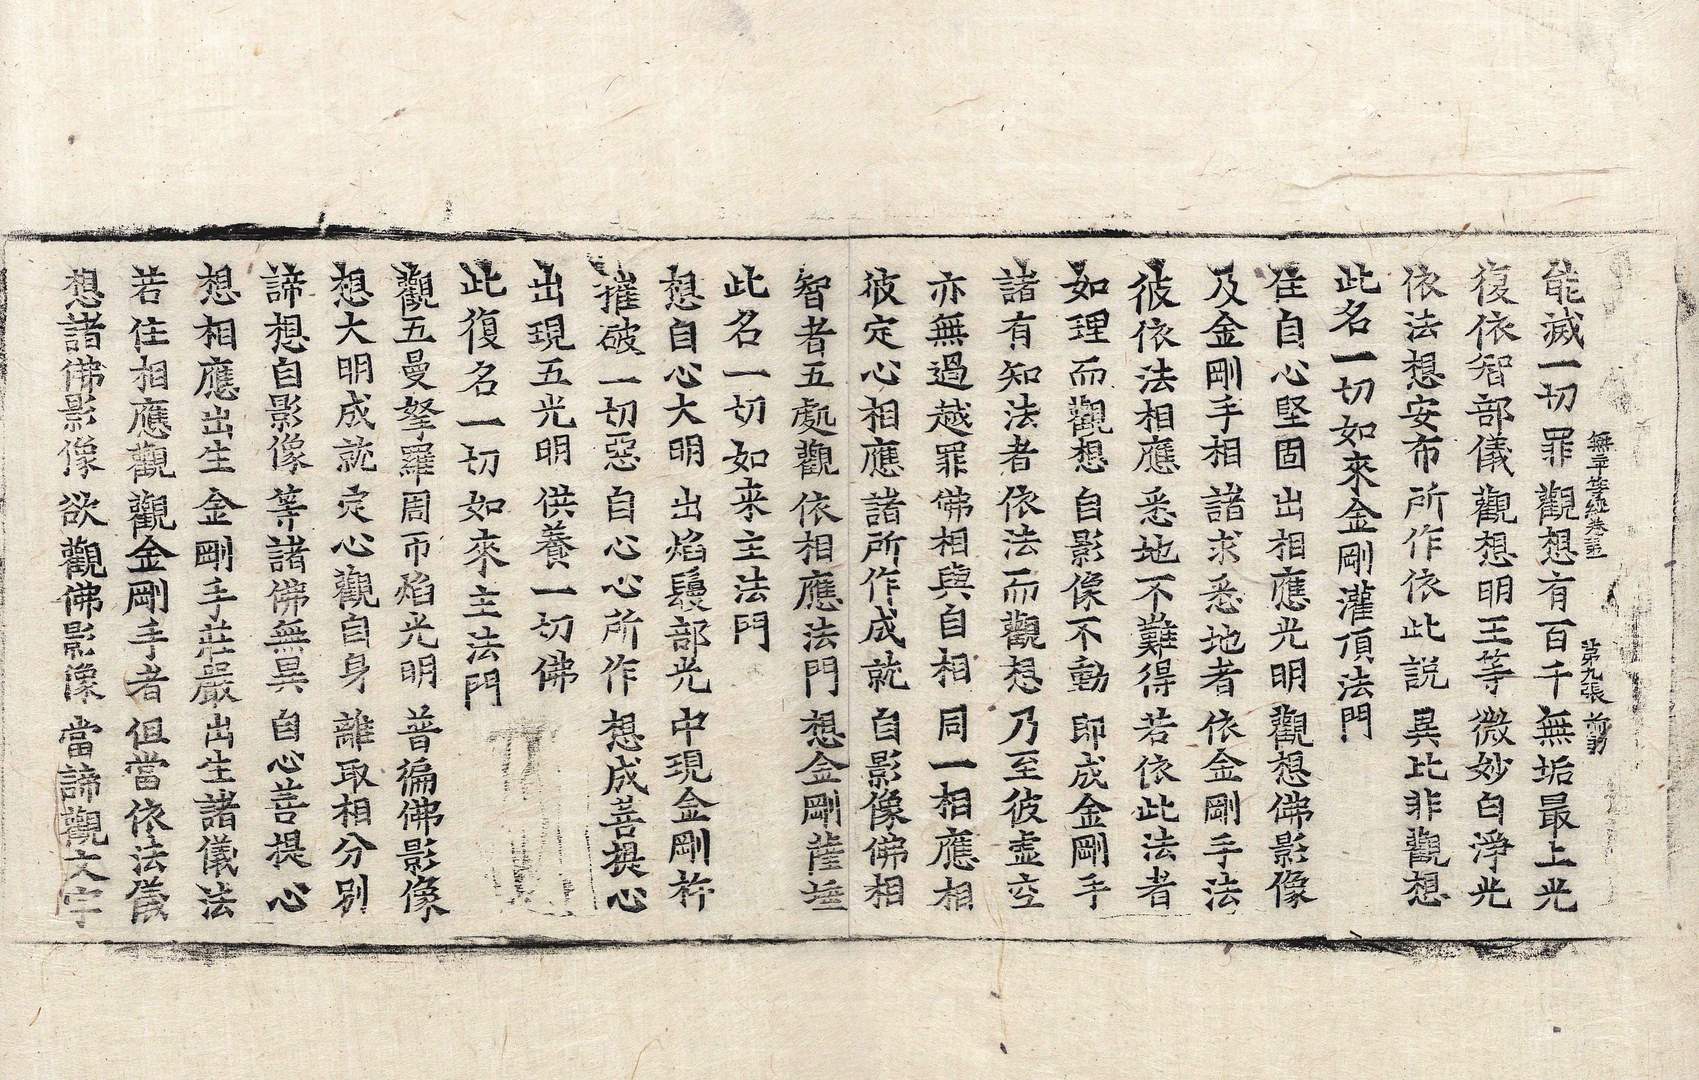 無二平等經卷三
第九張 前
能滅一切罪 觀想有百千 無垢最上光
復依智部儀 觀想明王等 微妙白淨光
依法想安布 所作依此說 異此非觀想
此名一切如來金剛灌頂法門
住自心堅固 出相應光明 觀想佛影像
及金剛手相 諸求悉地者 依金剛手法
彼依法相應 悉地不難得 若依此法者
如理而觀想 自影像不動 即成金剛手
諸有知法者 依法而觀想 乃至彼虛空
亦無過越罪 佛相與自相 同一相應相
彼定心相應 諸所作成就 自影像佛相
智者五處觀 依相應法門 想金剛薩埵
此名一切如來主法門
想自心大明 出焰鬘部光 中現金剛杵
摧破一切惡 自心心所作 想成菩提心
出現五光明 供養一切佛
此復名一切如來主法門
觀五曼拏羅 周帀焰光明 普徧佛影像
想大明成就 定心觀自身 離取相分別
諦想自影像 等諸佛無異 自心菩提心
想相應出生 金剛手莊嚴 出生諸儀法
若住相應觀 觀金剛手者 但當依法儀
想諸佛影像 欲觀佛影像 當諦觀文字